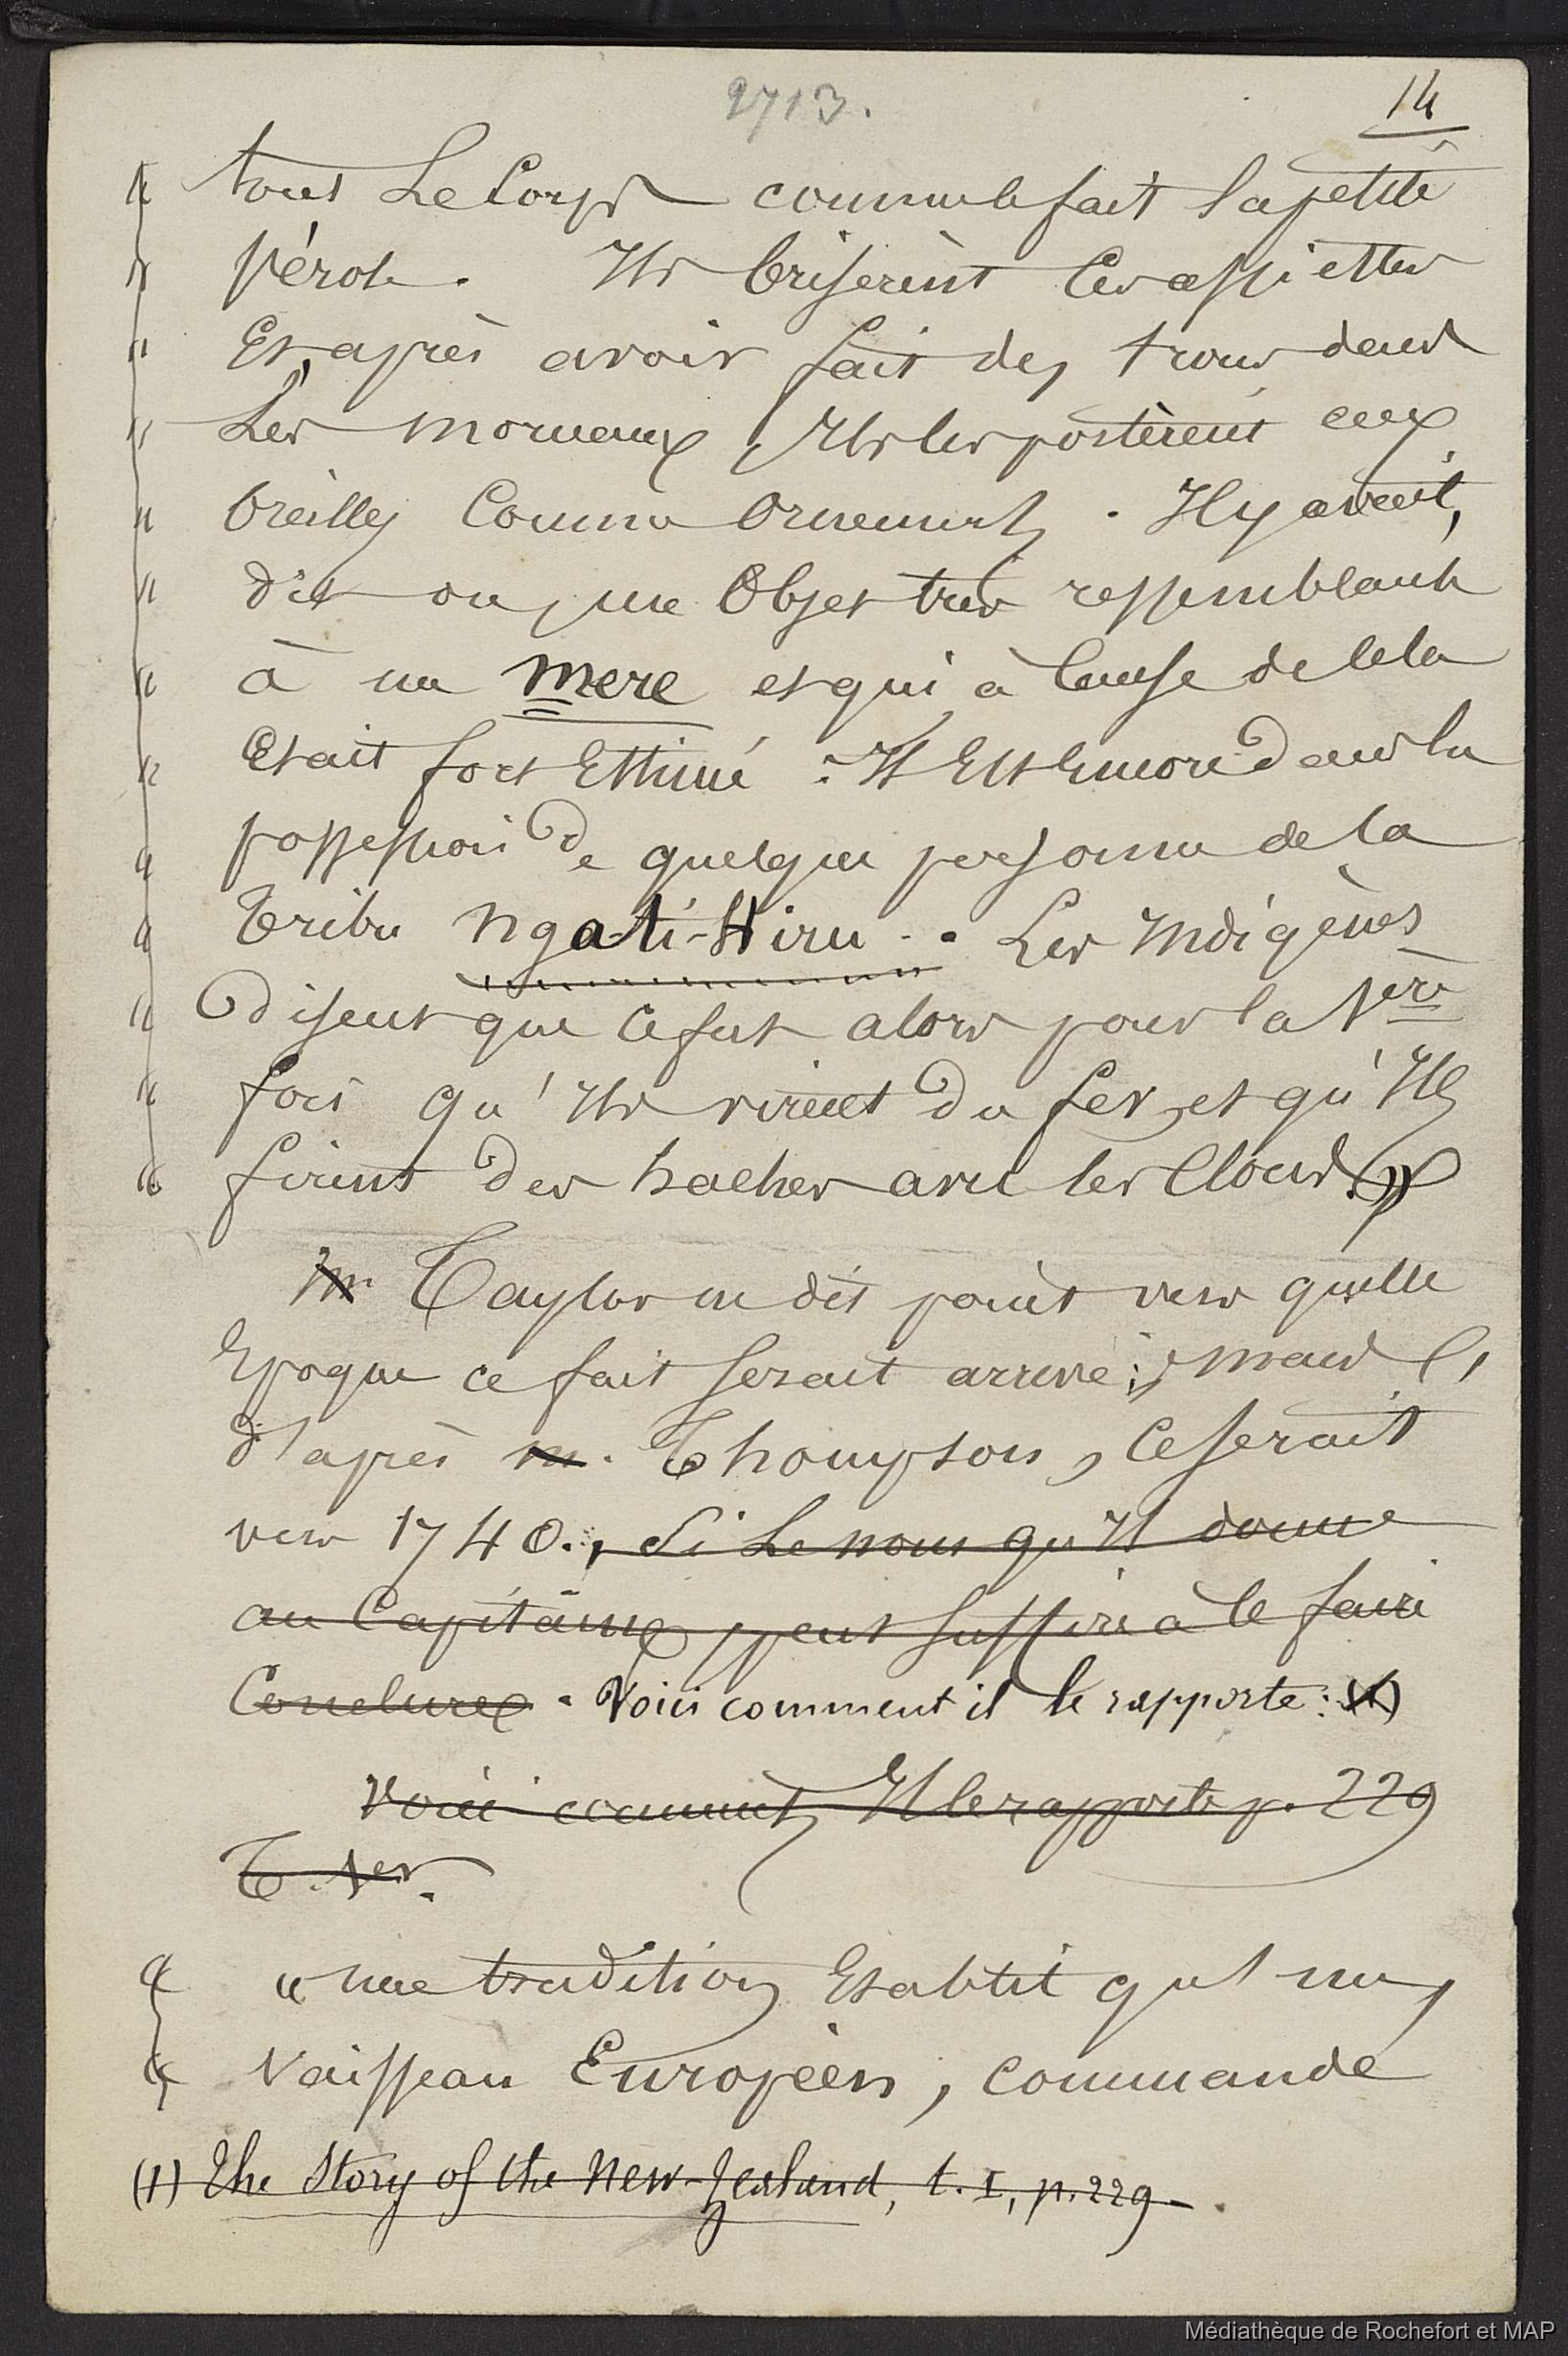 2713.
14
" tout Le Corps comme le fait la petite
" Vérole. Ils briserent les assiettes
" Et, après avoir fait des trous dans
" Les morceaux, Ils les portèrent aux
" Oreilles Comme Ornements. Il y avait,
" dit on, un Objet très ressemblant
" à un mere et qui à Cause de Cela
" Etait fort Estimé. Il Est Encore dans la
" possession de quelque personne de la
" Tribu Ngati-Hiru. Les Indigènes
" disent que Ce fut alors pour la 1ère
" fois qu'Ils virent du fer, et qu'Ils
" firent des haches avec les Clous. »
Mr Taylor ne dit point vers quelle
Epoque ce fait serait arrivé; mais
d'après M. Thompson, Ce serait
vers 1740., Si Le nom qu'Il donne
au Capitaine peut suffire à le faire
Conclure. Voici comment il le rapporte: (1)
Voici comment Il le rapporte p. 229
T. 1er.
" « Une tradition Etablit qu'un
" Vaisseau Européen, commandé
(1) The Story of the New-Zealand, t. I, p. 229.
Médiathèque de Rochefort et MAP